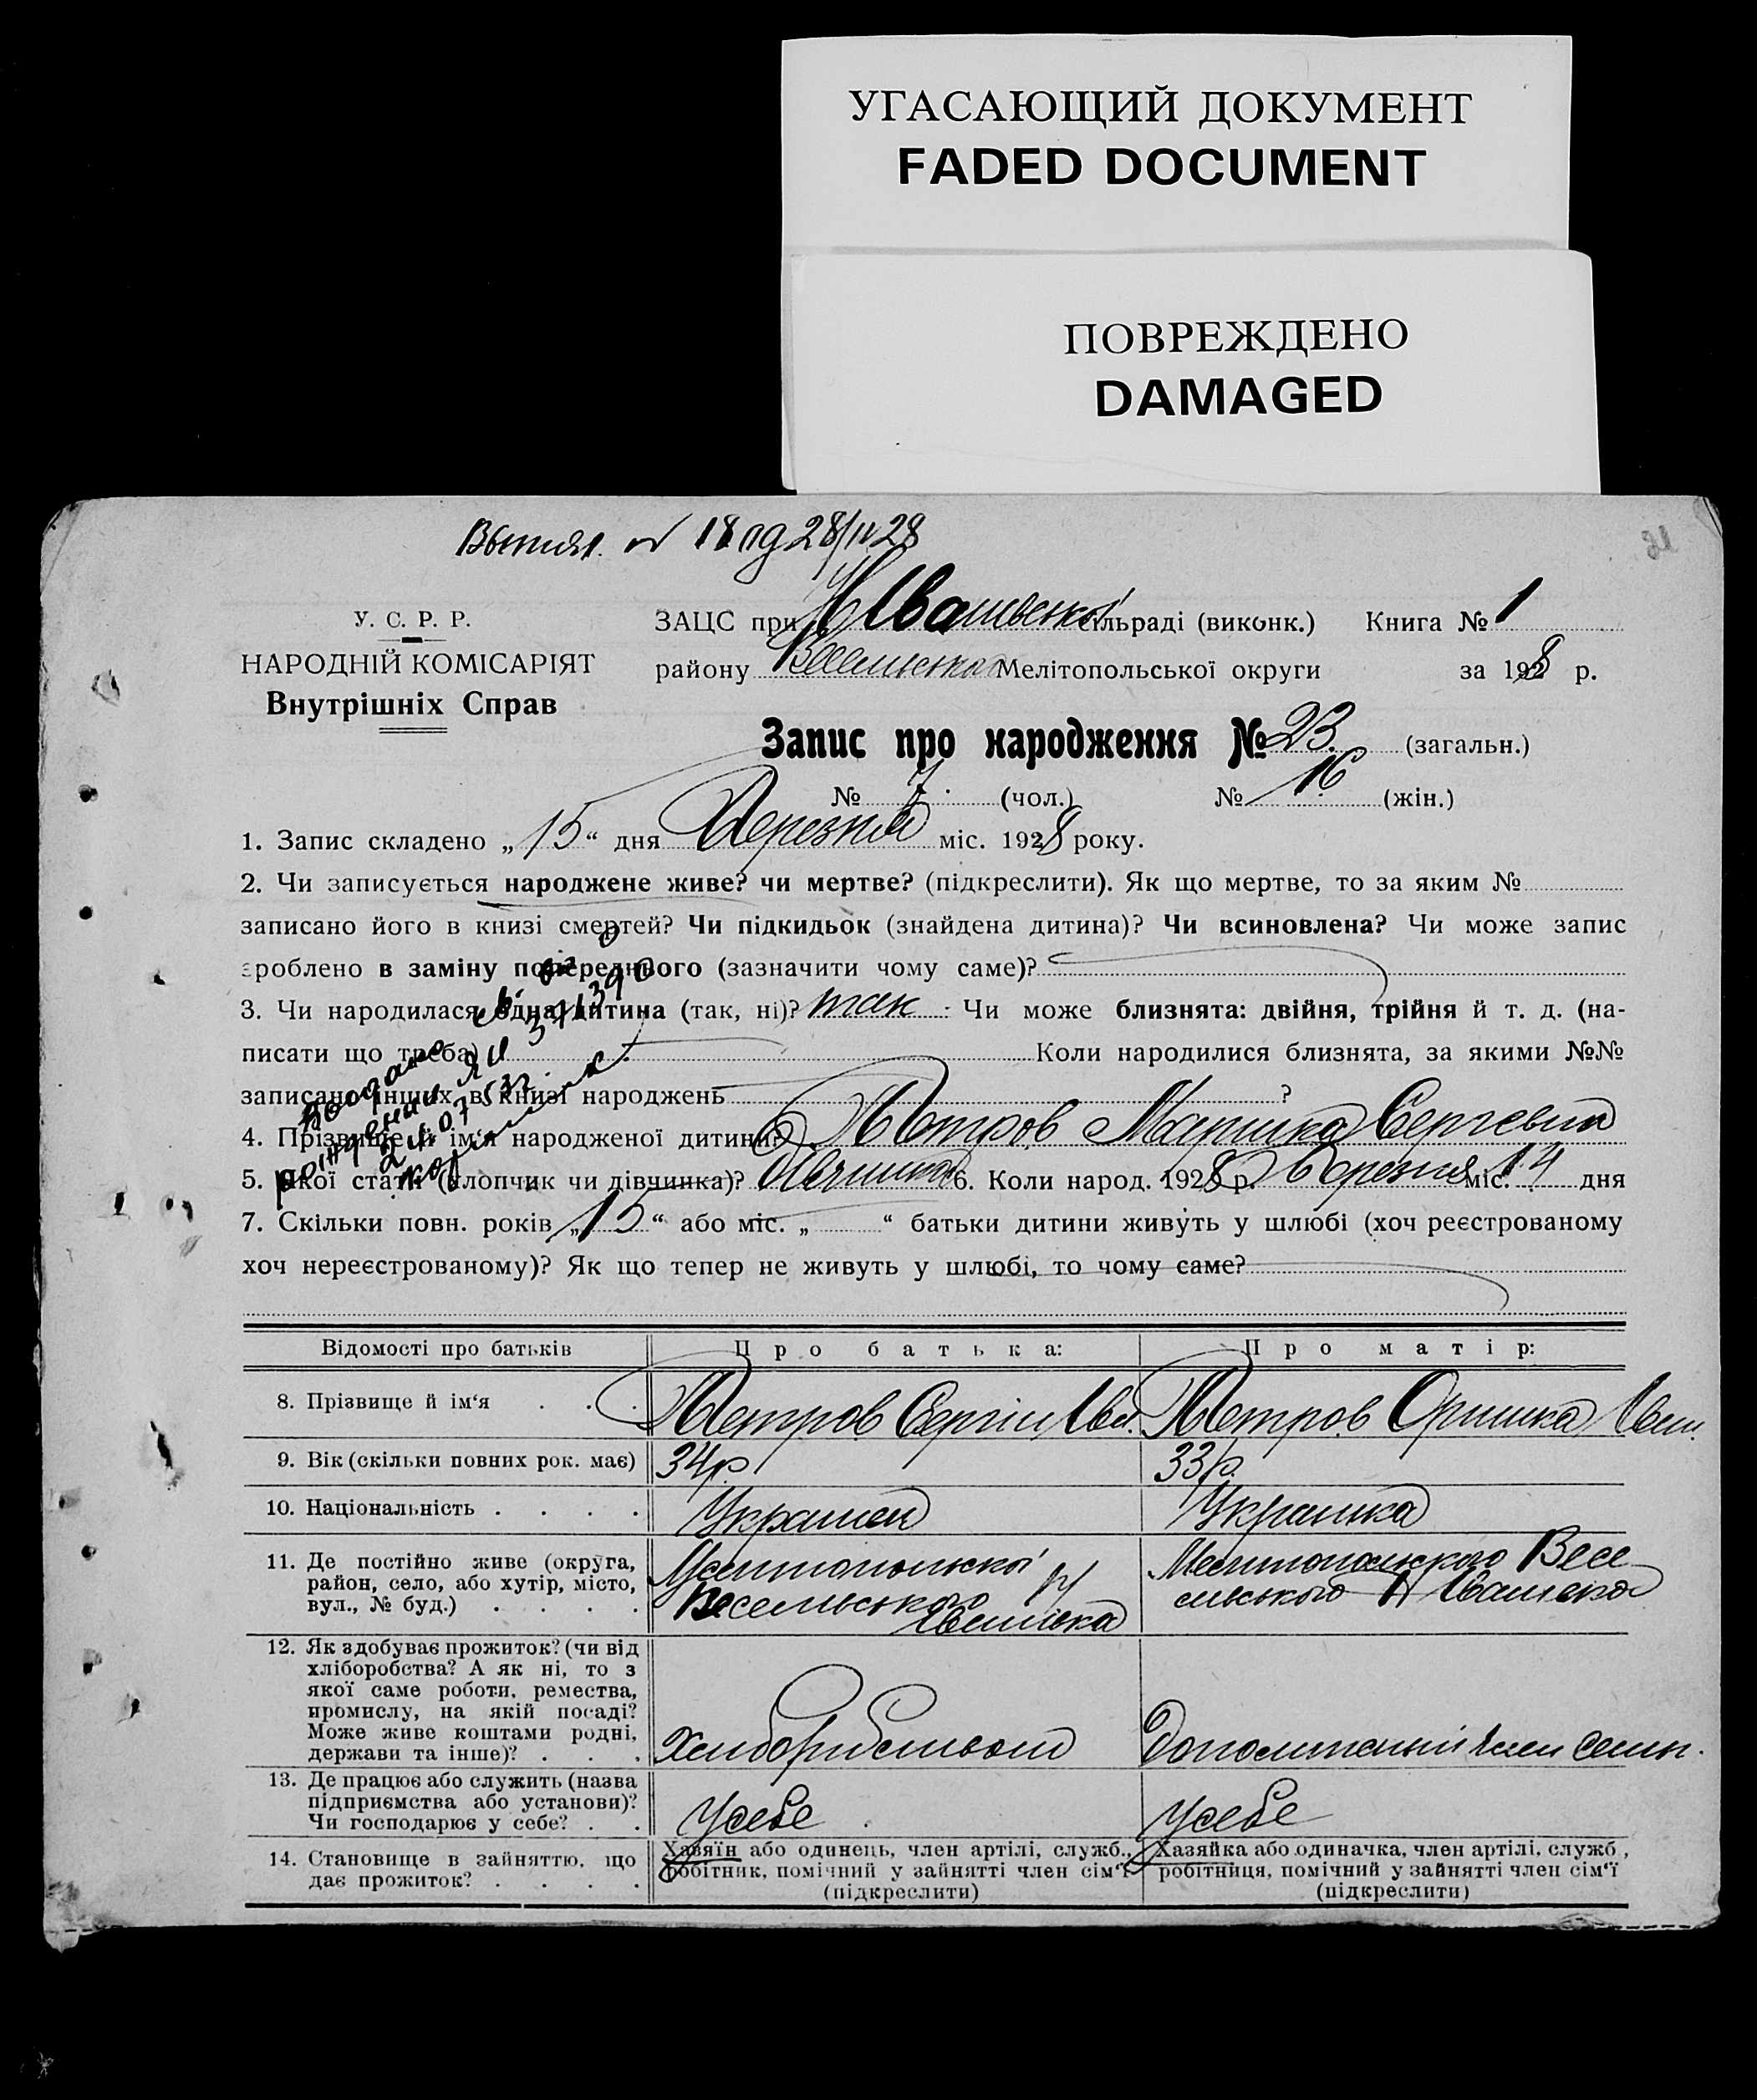 УГАСАЮЩИЙ ДОКУМЕНТ
FADED DOCUMENT
ПОВРЕЖДЕНО
DAMAGED
18 од 28/IV 28
У. С. Р. Р.
НАРОДНІЙ КОМІСАРІЯТ
Внутрішніх Справ
ЗАЦС при сільраді (виконк.) Книга № 1
району Мелітопольської округи за 1928 р.
Запис про народження № 23 (загальн.)
№ 7 (чол.) № 16 (жін.)
1. Запис складено „15“ дня Березня міс. 1928 року.
2. Чи записується народжене живе? чи мертве? (підкреслити). Як що мертве, то за яким №
записано його в книзі смертей? Чи підкидьок (знайдена дитина)? Чи всиновлена? Чи може запис
зроблено в заміну попереднього (зазначити чому саме)?
3. Чи народилася одна дитина (так, ні)? так Чи може близнята: двійня, трійня й т. д. (на-
писати що треба) Коли народилися близнята, за якими №№
записано інших в книзі народжень ?
4. Прізвище й ім‘я народженої дитини? Петров Маришка Сергевна
5. Якої статі (хлопчик чи дівчинка)? Дівчинка 6. Коли народ. 1928 р. Березня міс. 14 дня
7. Скільки повн. років „15“ або міс. „ “ батьки дитини живуть у шлюбі (хоч реєстрованому
хоч нереєстрованому)? Як що тепер не живуть у шлюбі, то чому саме?
Відомості про батьків Про батька: Про матір:
8. Прізвище й ім‘я Петров Сергій Ів. Петров Оришка
9. Вік (скільки повних рок. має) 34 р. 33 р.
10. Національність Украинец Украинка
11. Де постійно живе (округа,
район, село, або хутір, місто,
вул., № буд.)
Мелитопольскої
Весельського
Мелитопольского Весе
ельського
12. Як здобуває прожиток? (чи від
хліборобства? А як ні, то з
якої саме роботи, ремества,
промислу, на якій посаді?
Може живе коштами родні,
держави та інше)?
Хліборобством
член семьи.
13. Де працює або служить (назва
підприємства або установи)?
Чи господарює у себе?
У себе
У себе
14. Становище в зайняттю, що
дає прожиток?
Хазяїн або одинець, член артілі, служб.,
робітник, помічний у зайнятті член сім‘ї
(підкреслити)
Хазяйка або одиначка, член артілі, служб,
робітниця, помічний у зайнятті член сім‘ї
(підкреслити)